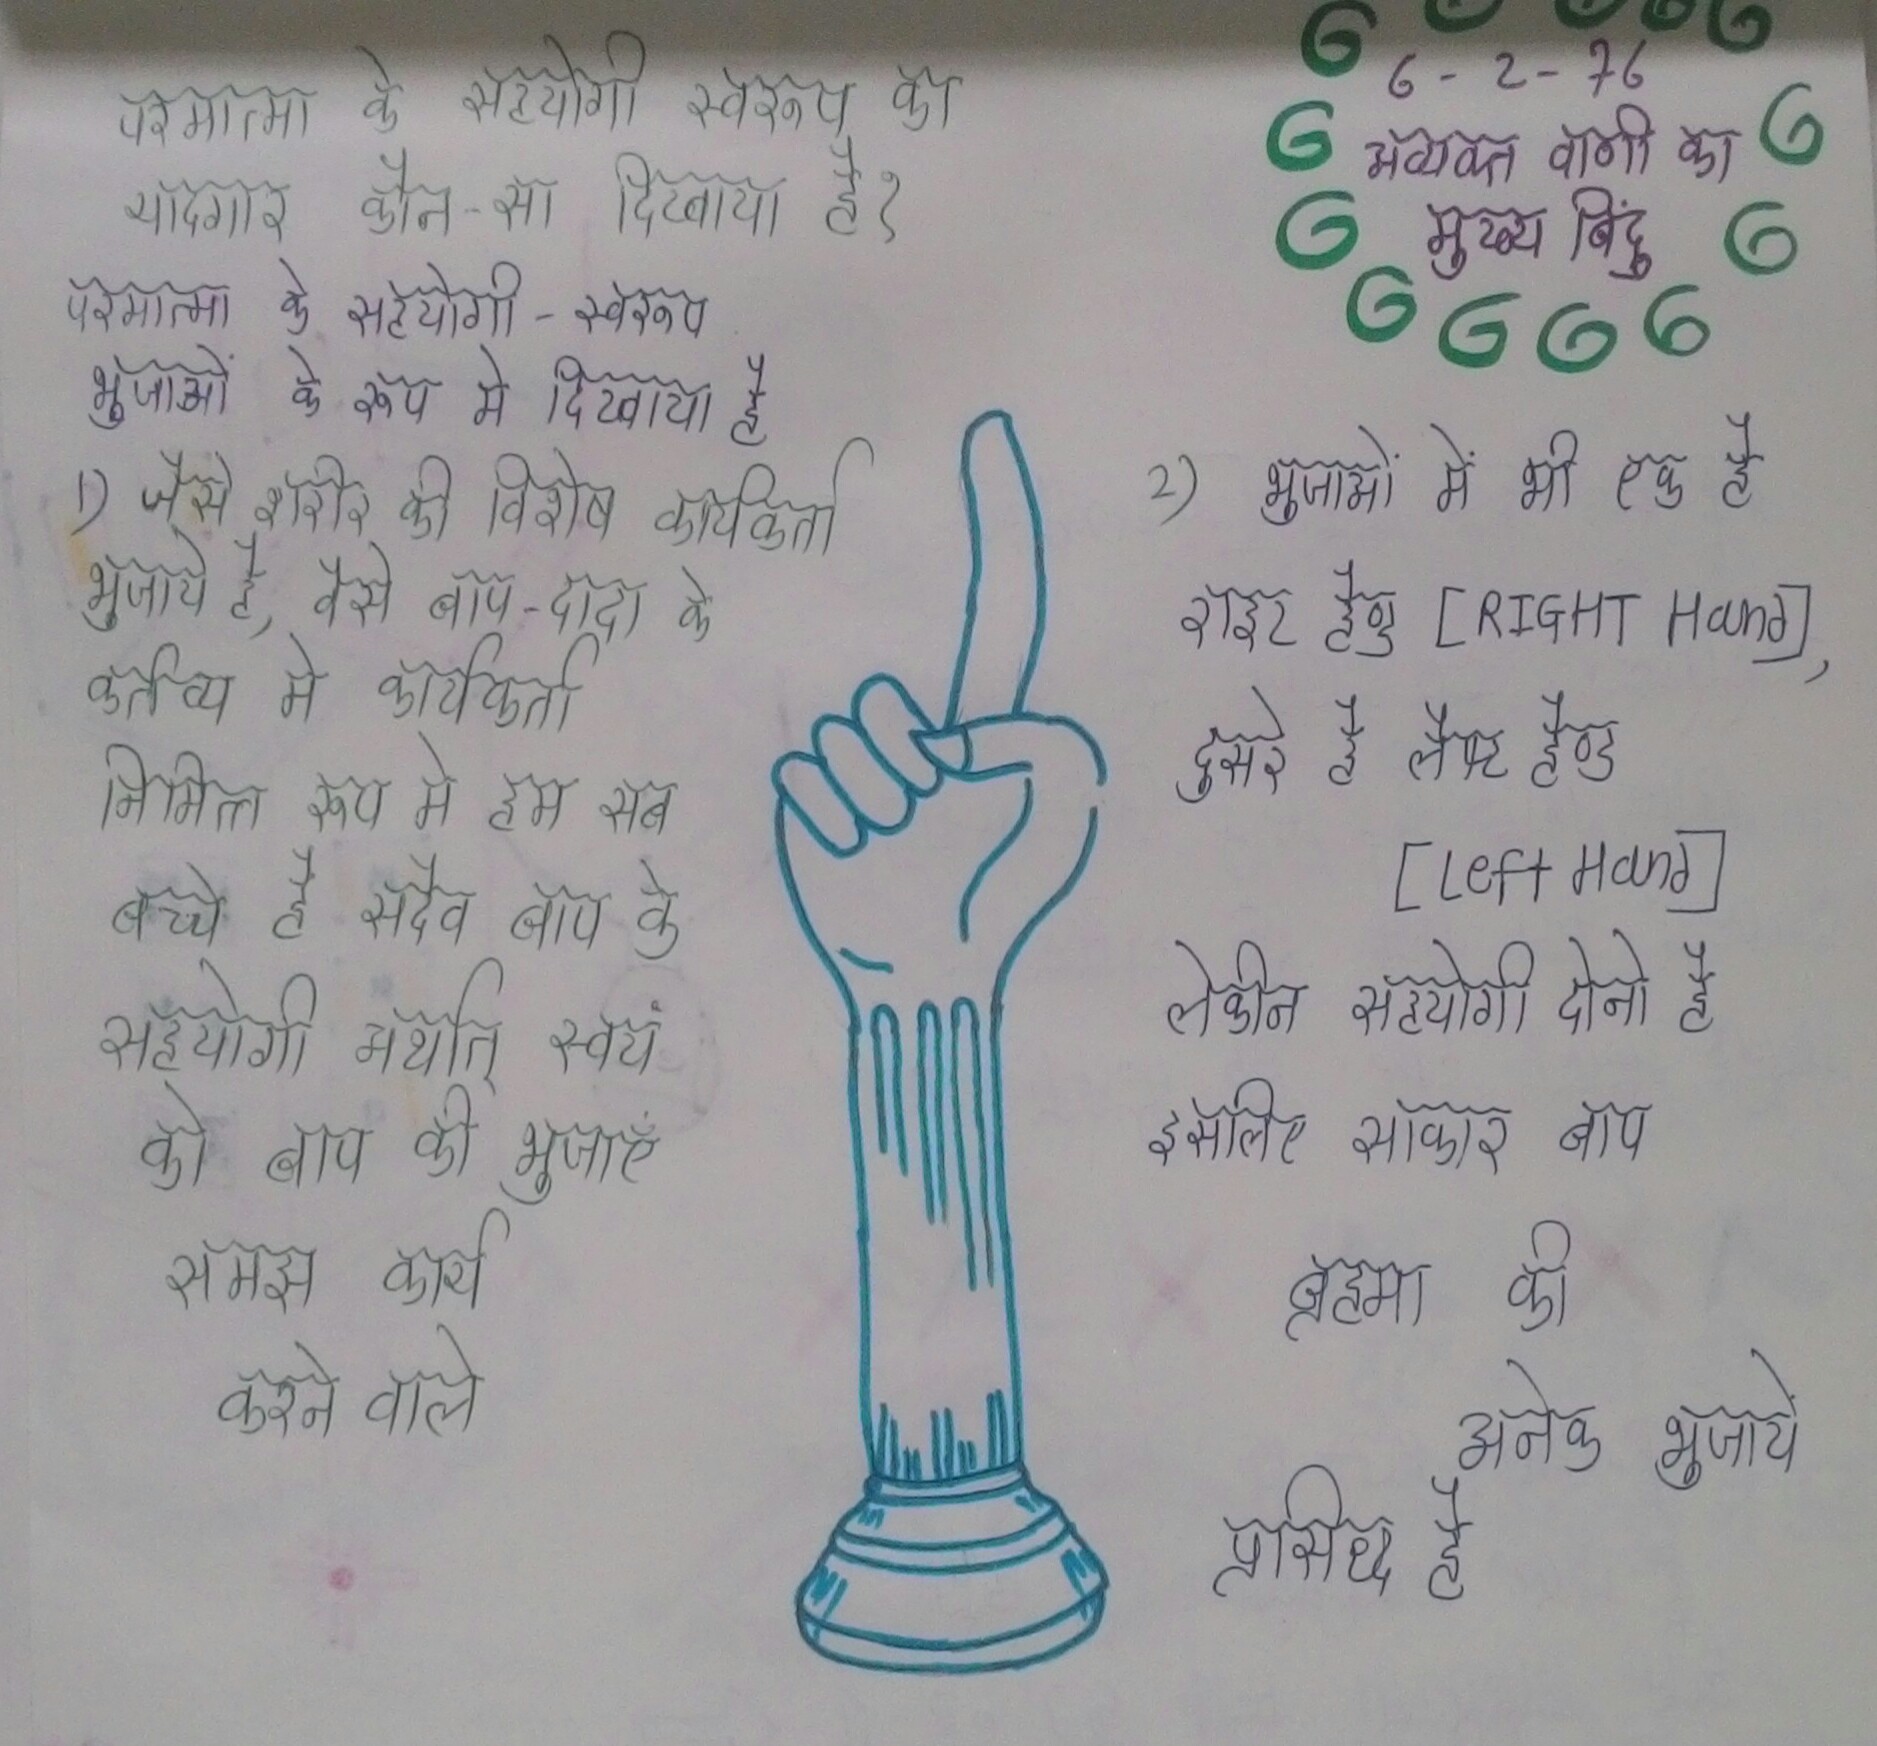 परमात्मा के सहयोगी स्वरूप का
यादगार कौन-सा दिखाया है?
परमात्मा के सहयोगी - स्वरूप
भुजाओं के रूप मे दिखाया है
1) जैसे शरीर की विशेष कार्यकर्ता
भुजाये है, वैसे बाप-दादा के
कर्तव्य मे कार्यकर्ता
निमित्त रूप मे हम सब
बच्चे है सदैव बाप के
सहयोगी अर्थात् स्वयं
को बाप की भुजाएं
समझ कार्य
करने वाले
6-2-76
अव्यक्त वाणी का
मुख्य बिंदु
2) भुजाओं में भी एक है
राइट हैण्ड [RIGHT Hand],
दुसरे है लैफ्ट हैण्ड
[Left Hand]
लेकीन सहयोगी दोनो है
इसलिए साकार बाप
ब्रह्मा की
अनेक भुजाये
प्रसिध्द है